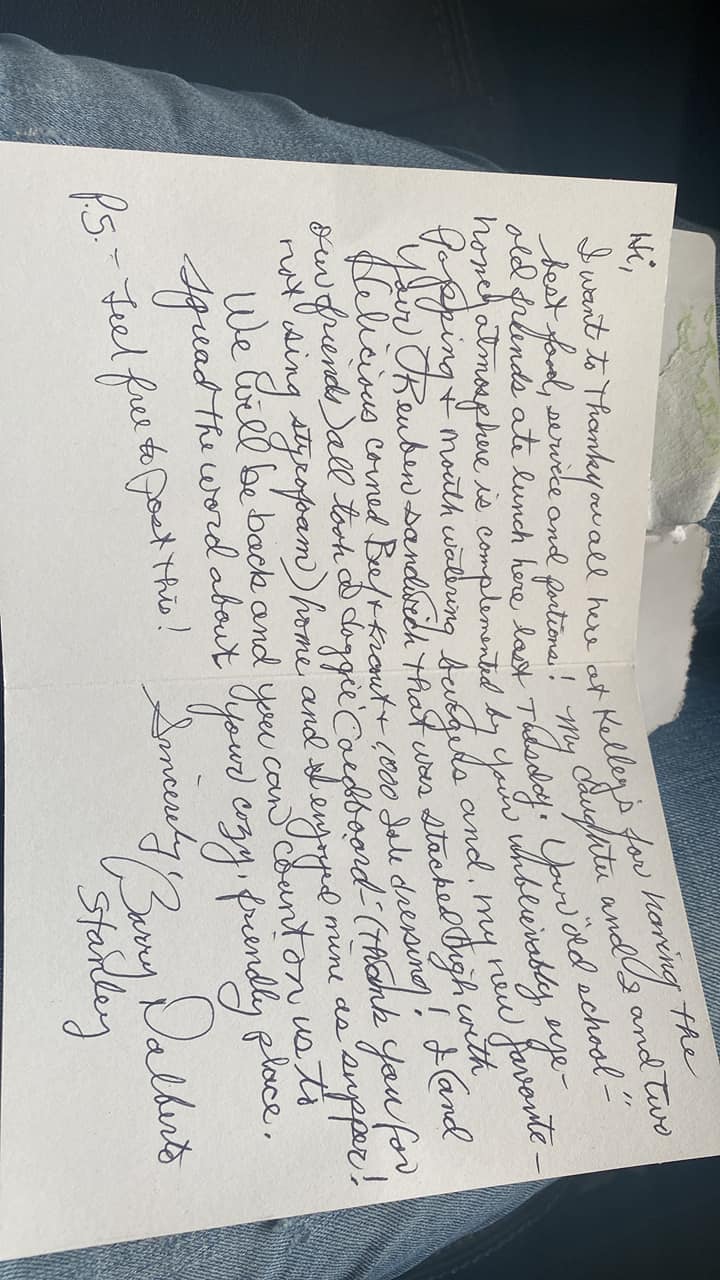 Hi,
I want to Thank you all here at Kelley's for having the
best food, service and portions! My daughter and I and two
old friends ate lunch here last Tuesday. Your "old school-"
homey atmosphere is complemented by your unbelievably eye-
popping + mouth watering burgers and, my new favorite-
your Reuben sandwich that was stacked high with
delicious corned Beef + Kraut + 1,000 Isle dressing! I (and
our friends) all took a doggie (cardboard - (thank you for
not using styrofoam) home and I enjoyed mine as supper!
We will be back and you can count on us to
spread the word about your cozy, friendly place.
Sincerely, Barry Dalberto
Stanley
P.S. - Feel free to post this!